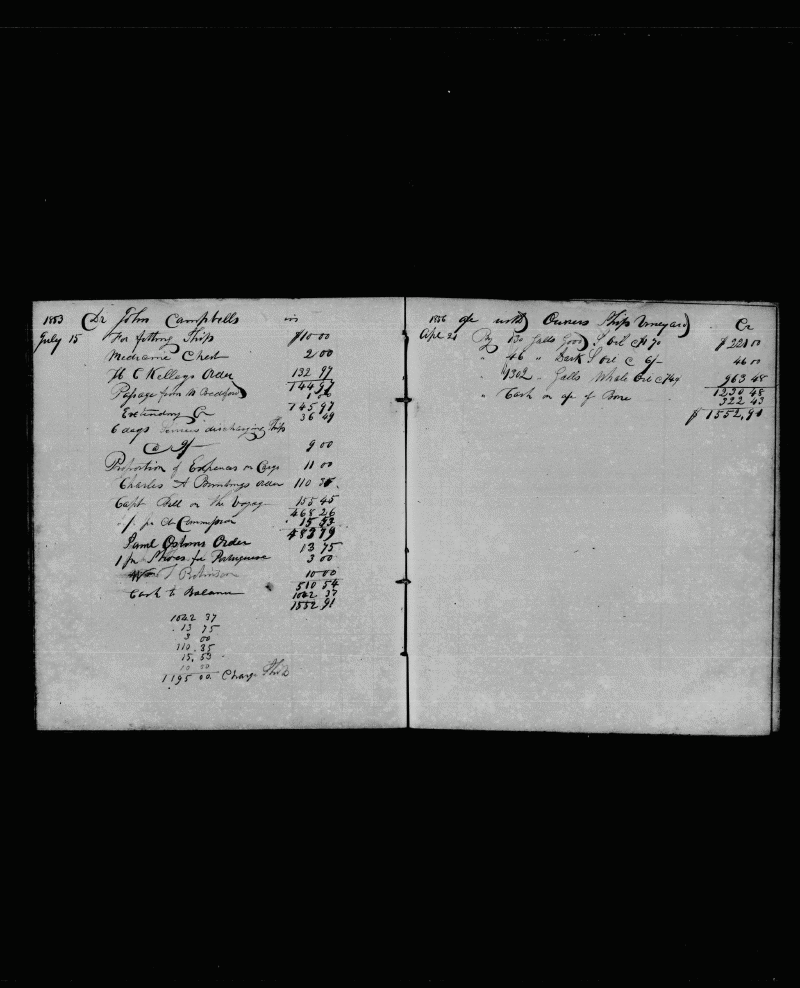 1853 Dr John Campbells in
July 15 For fitting Ship $10 00
Medicine Chest 2 00
H C Kelleys Order 132 97
144 97
Passage from N Bedford 1 00
145 97
36 49
6 days discharging Ship
@ 9 00
Proportion of Expenses on Cargo 11 00
Charles A Order 110 35
Capt Bill on the Voyage 155 45
468 26
pr Ct Commission 15 53
483 79
Saml Osborns Order 13 75
1 pr Shoes for Portuguese 3 00
Robinson 10 00
510 54
Cash to Balance 1042 37
1552 91
1042 37
13 75
3 00
110.35
15.53
10 00
1195 00 Charge Ship
1856 a/c with Owners Ship Vineyard Cr
Apl 21 By 130 Galls Good S Oil @ 1 70 $ 221 00
" 46 " Dark S Oil @ 46 00
" 1302 " Galls Whale Oil @ 963 48
1230 48
" Cash on a/c of Bone 322 43
$ 1552.91